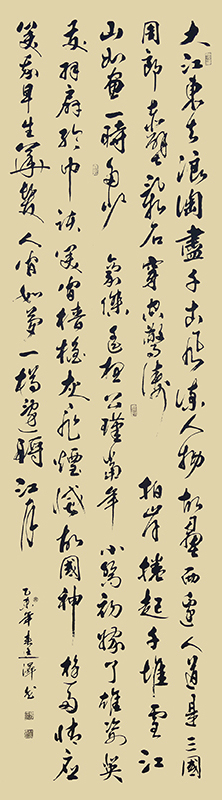 大江東去浪淘盡千古風流人物故壘西邊人道是三國
周郎赤壁亂石穿空驚濤拍岸捲起千堆雪江
山如畫一時多少豪傑遙想公瑾當年小喬初嫁了雄姿英
發羽扇綸巾談笑間檣櫓灰飛煙滅故國神遊多情應
笑我早生華髮人間如夢一樽還酹江月
乙未年